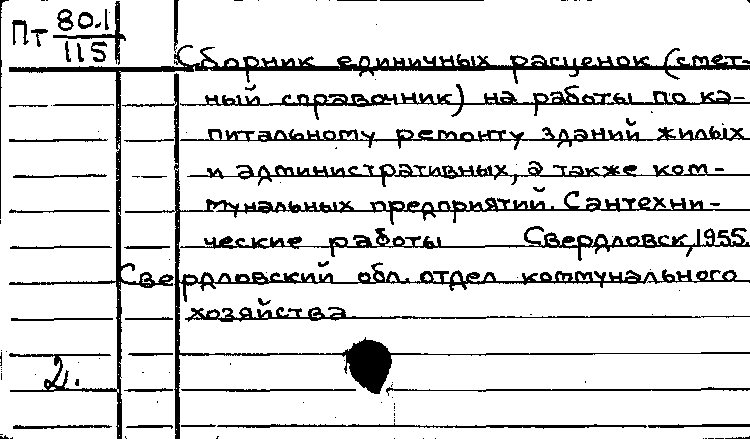 Пт 80.1
115
Сборник единичных расценок (смет-
ный справочник) на работы по ка-
питальному ремонту зданий жилых
и административных, а также ком-
мунальных предприятий. Сантехни-
ческие работы Свердловск, 1955.
Свердловский обл. отдел коммунального
хозяйства.
2.